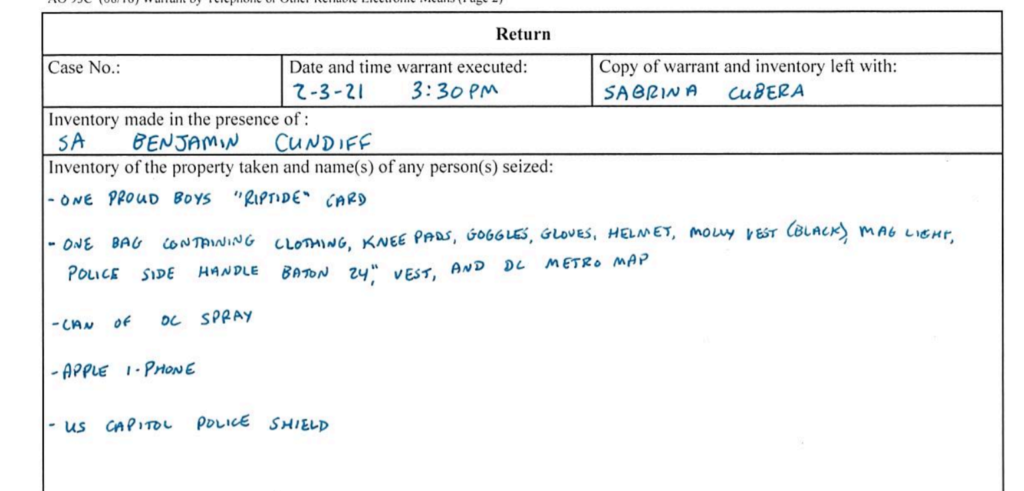 AO 93C (08/18) Warrant by Telephone or Other Reliable Electronic Means (Page 2)
Return
Case No.:
Date and time warrant executed:
2-3-21 3:30 PM
Copy of warrant and inventory left with:
SABRINA CUBERA
Inventory made in the presence of :
SA BENJAMIN CUNDIFF
Inventory of the property taken and name(s) of any person(s) seized:
- ONE PROUD BOYS "RIPTIDE" CARD
- ONE BAG CONTAINING CLOTHING, KNEE PADS, GOGGLES, GLOVES, HELMET, MOLLY VEST (BLACK), MAG LIGHT,
POLICE SIDE HANDLE BATON 24", VEST, AND DC METRO MAP
- CAN OF OC SPRAY
- APPLE I-PHONE
- US CAPITOL POLICE SHIELD